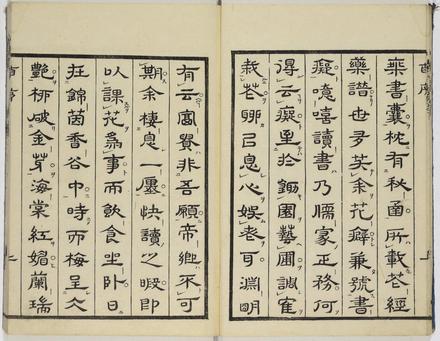 乘書囊枕有秘函所載花經
藥譜世多笑余花癖兼號書
癡噫嘻讀書乃儒家正務何
得云癡至於鋤園藝圃調寉
栽花聊以息心娛老耳淵明
有云富貴非吾願帝鄉不可
期余棲息一廛快讀之暇即
以課花為事而飲食坐卧日
在錦茵香谷中時而梅呈人
艷柳破金芽海棠紅媚蘭瑞